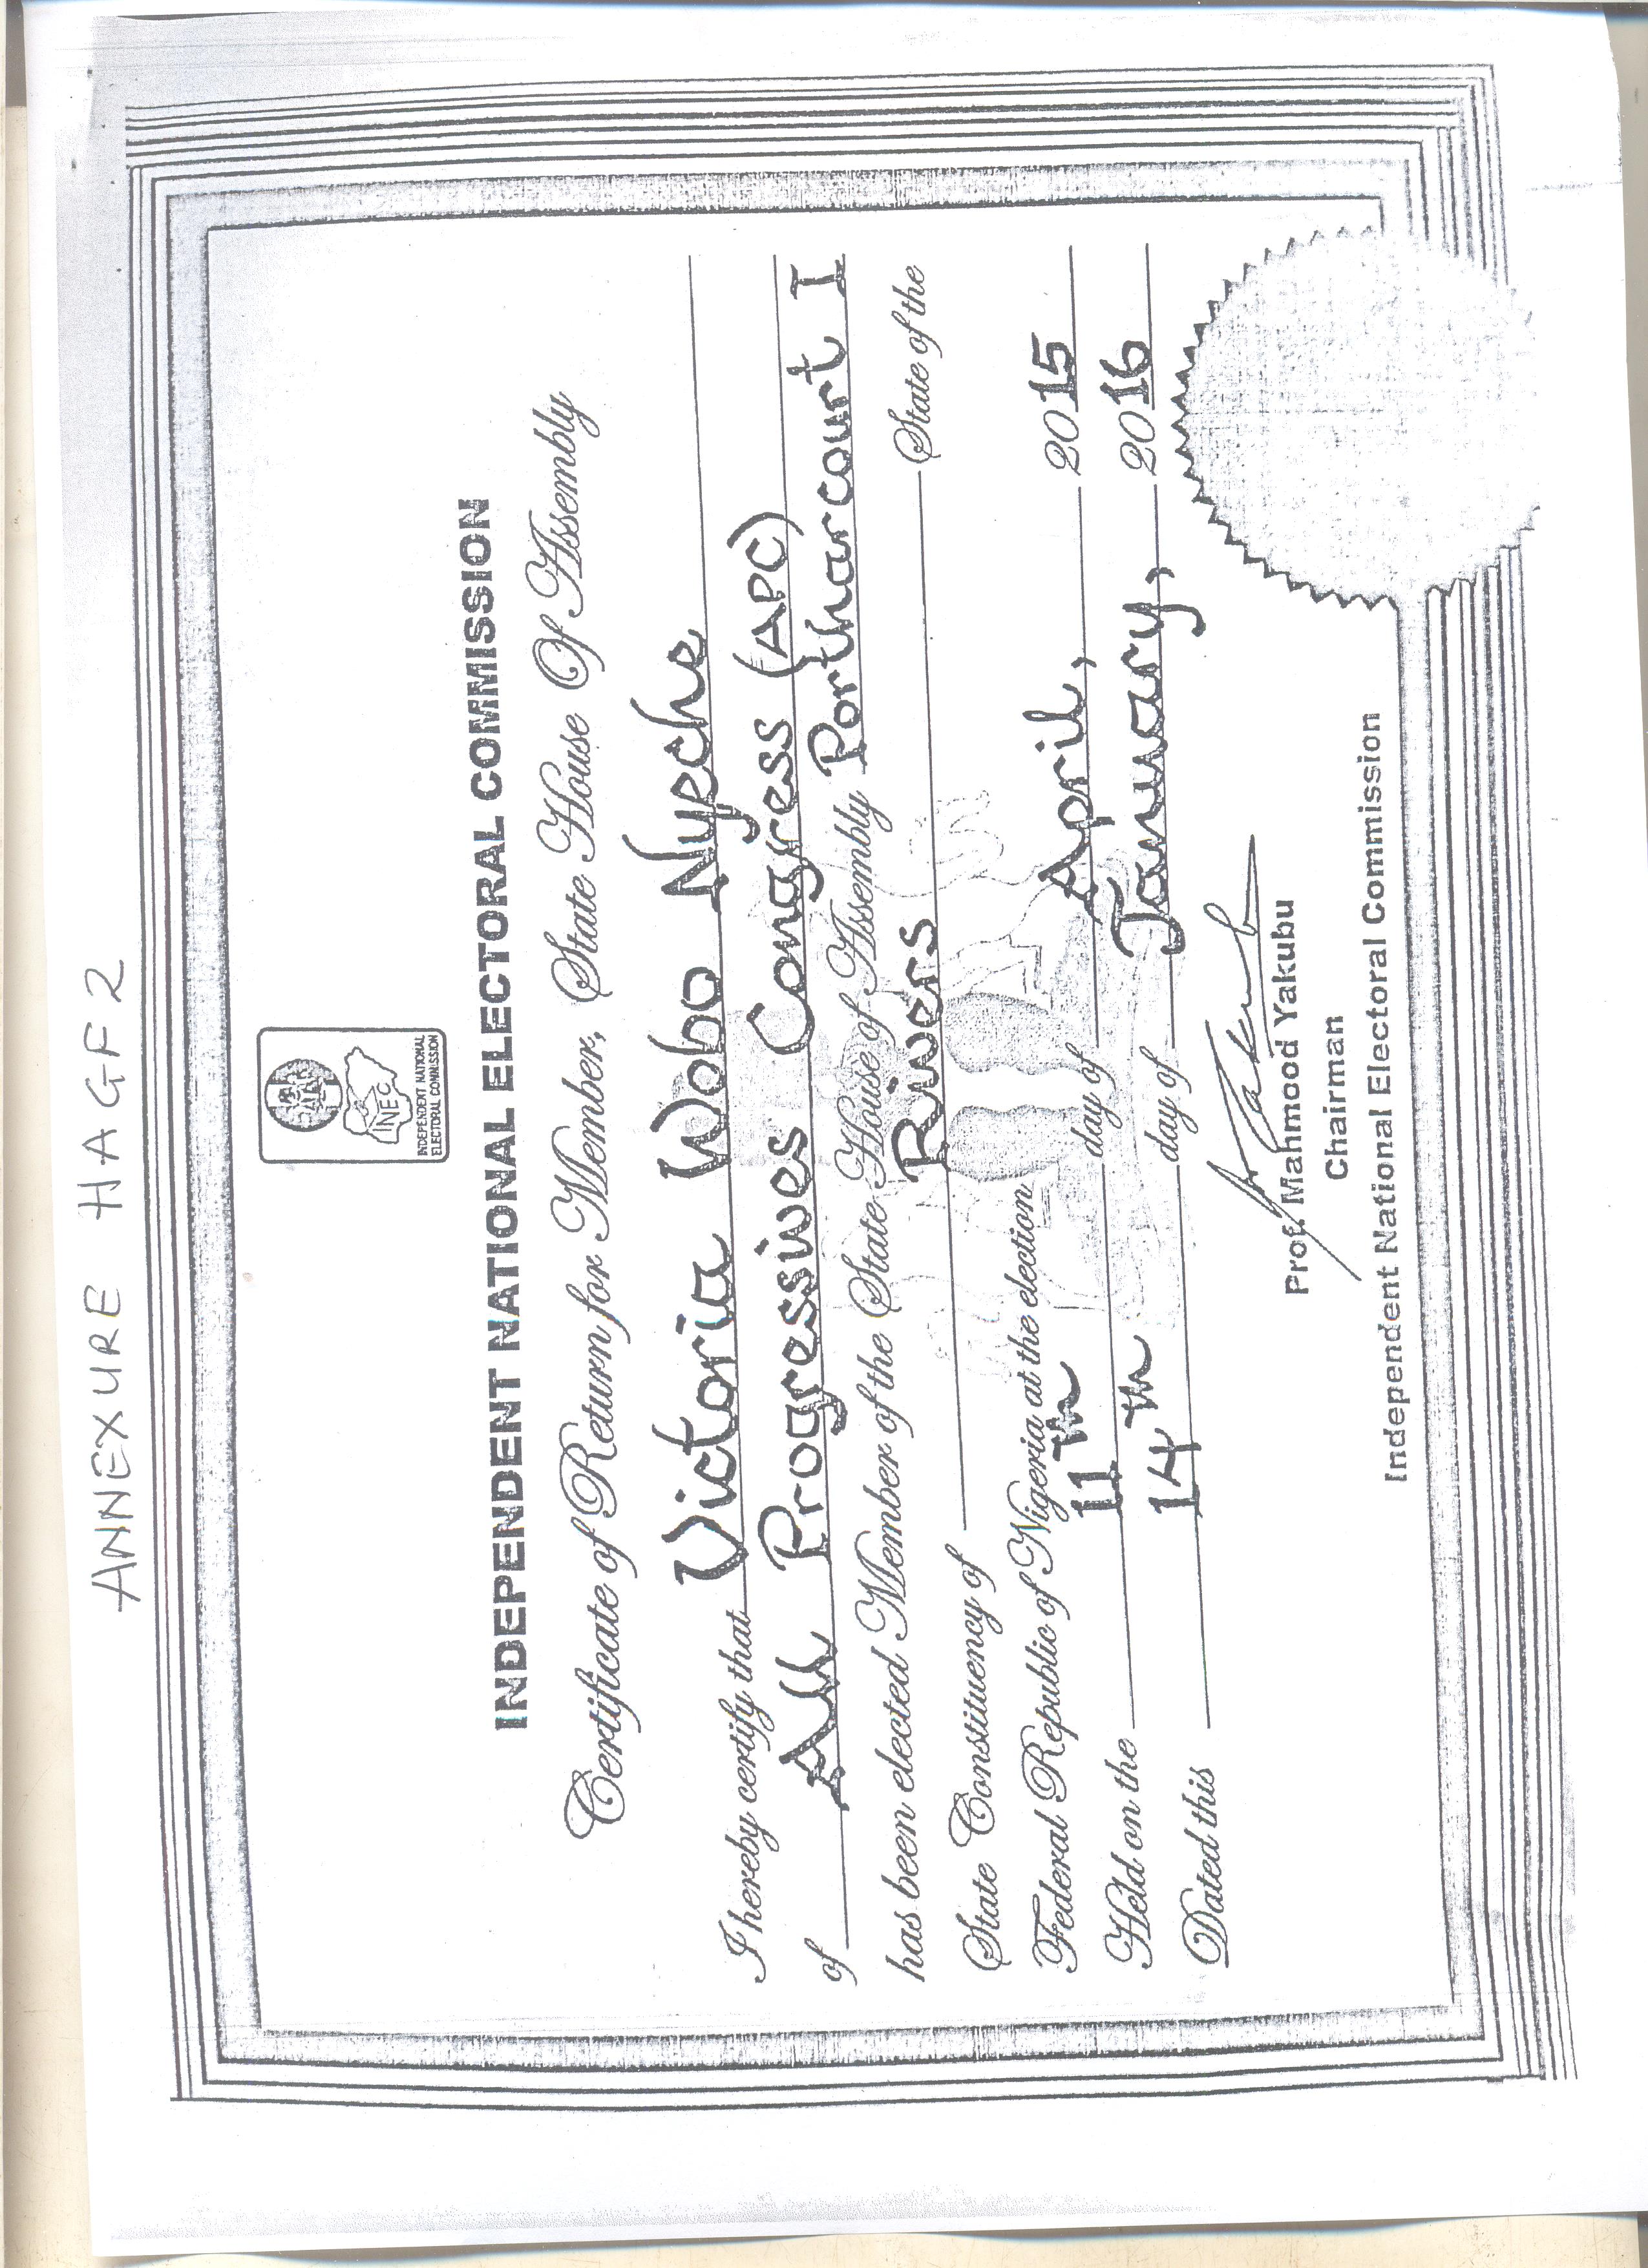 ANNEXURE HAGF2
INEC
INDEPENDENT NATIONAL
ELECTORAL COMMISSION
INDEPENDENT NATIONAL ELECTORAL COMMISSION
Certificate of Return for Member, State House Of Assembly
I hereby certify that Victoria Wobo Nyeche
of All Progressives Congress (APC)
has been elected Member of the State House of Assembly Portharcourt I
State Constituency of Rivers State of the
Federal Republic of Nigeria at the election
Held on the 11th day of April, 2015
Dated this 14th day of January, 2016
Prof. Mahmood Yakubu
Chairman
Independent National Electoral Commission